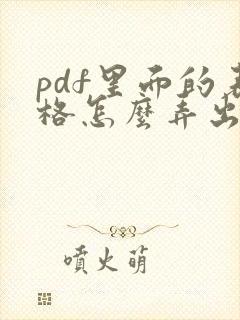 pdf里面的表
格怎麼弄出
噴火萌